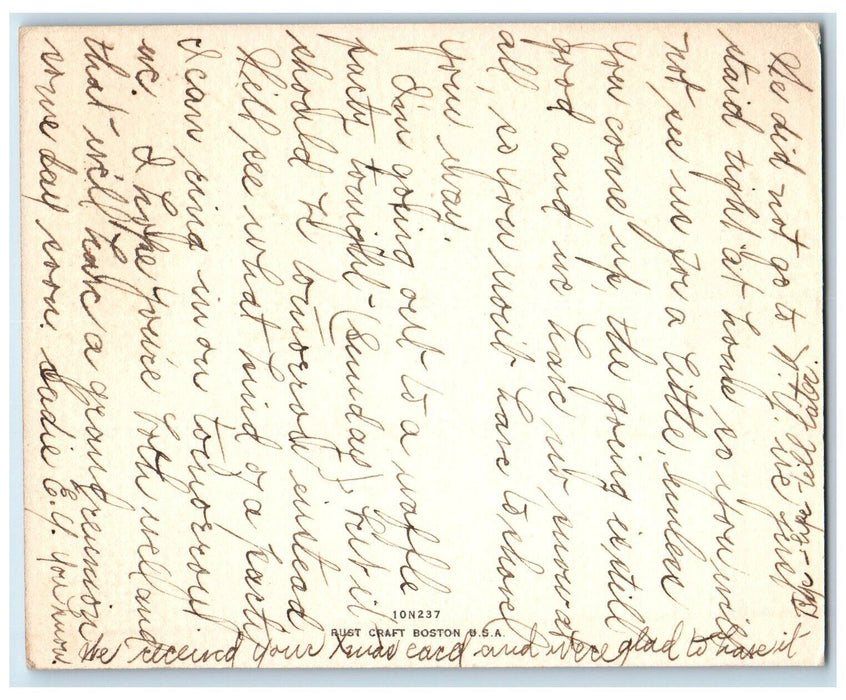 We did not go to N.Y. we just
staid tight at home so you will
not see us for a little, unless
you come up, the going is still
good and we have no snow at
all, so you won't have to shovel
your way.
I'm going out to a waffle
party tonight - (Sunday) but it
should be tomorrow instead
Will see what kind of a party
I can ring in on tomorrow
I hope you're both well and
that we'll have a grand reunion
some day soon. Sadie E.Y. you know.
10N237
RUST CRAFT BOSTON U.S.A.
We received your Xmas card and were glad to have it